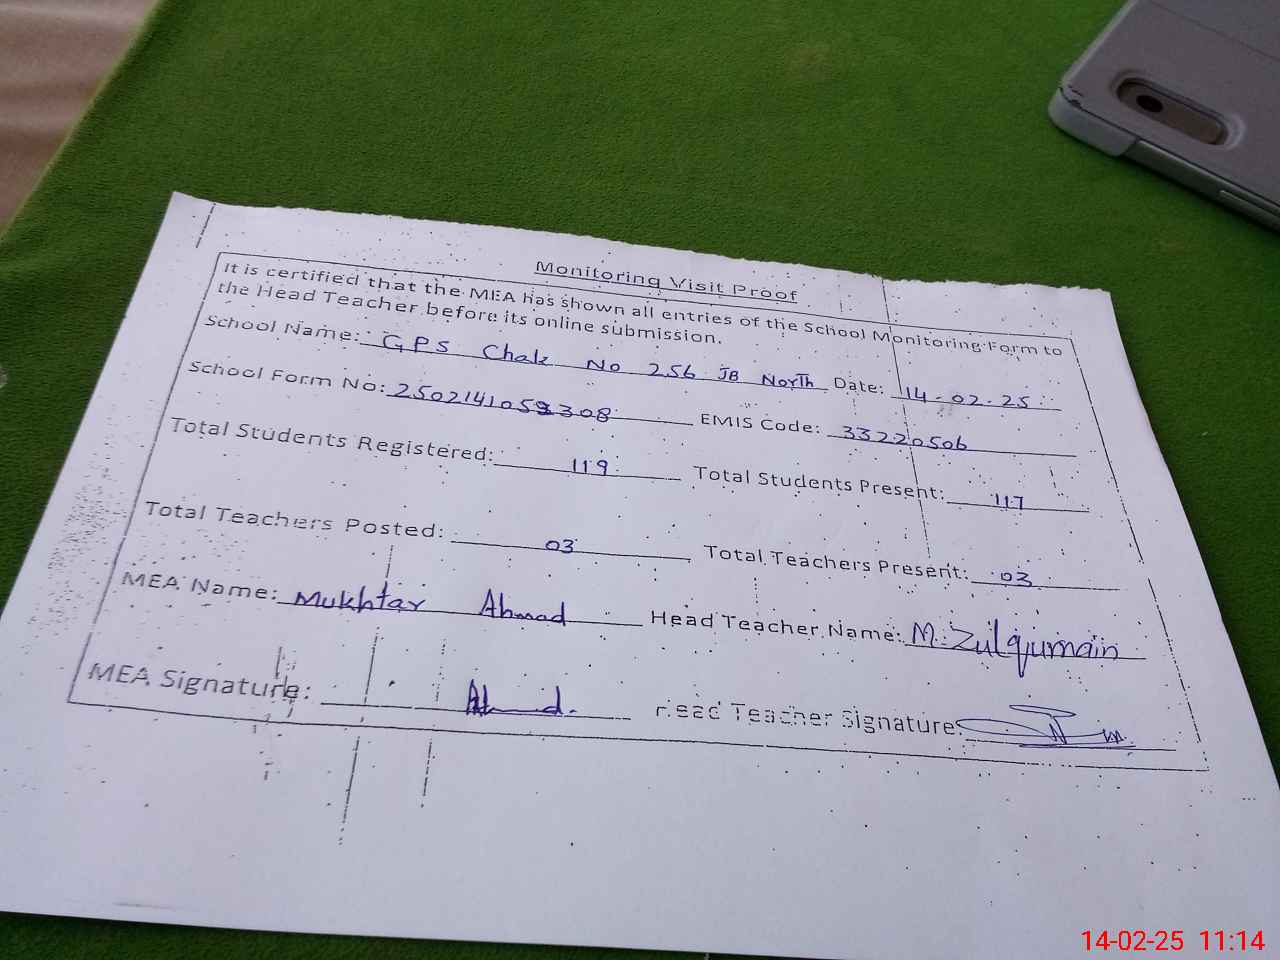 Monitoring Visit Proof
It is certified that the MEA has shown all entries of the School Monitoring Form to
the Head Teacher before its online submission.
School Name: GPS Chak No 256 JB North Date: 14-02-25
School Form No: 2502141059308 EMIS Code: 33220506
Total Students Registered: 119 Total Students Present: 117
Total Teachers Posted: 03 Total Teachers Present: 03
MEA Name: Mukhtar Ahmad Head Teacher Name: M. Zulqurnain
MEA Signature: Ahmad Head Teacher Signature:
14-02-25 11:14